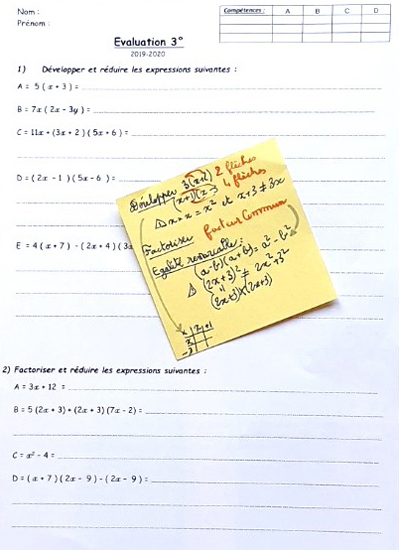 Nom :
Prénom :
Compétences : A B C D
Evaluation 3°
2019-2020
1) Développer et réduire les expressions suivantes :
A = 5 ( x + 3 ) =
B = 7x ( 2x - 3y ) =
C = 11x + (3x + 2 ) ( 5x + 6 ) =
D = ( 2x - 1 ) ( 5x - 6 ) =
E = 4 ( x + 7 ) - ( 2x + 4 ) ( 3x
Développer 3(x+2) 2 flèches
(x+1)(x-3 4 flèches
⚠ x × x = x² et x+3 ≠ 3x
Factoriser facteur commun
Egalité remarquable :
(a-b)(a+b) = a² - b²
⚠ (2x+3)² ≠ 2x²+3²
"
(2x+3)×(2x+3)
2) Factoriser et réduire les expressions suivantes :
A = 3x + 12 =
B = 5 (2x + 3) + (2x + 3) (7x - 2) =
C = x² - 4 =
D = ( x + 7 ) ( 2x - 9 ) - ( 2x - 9 ) =